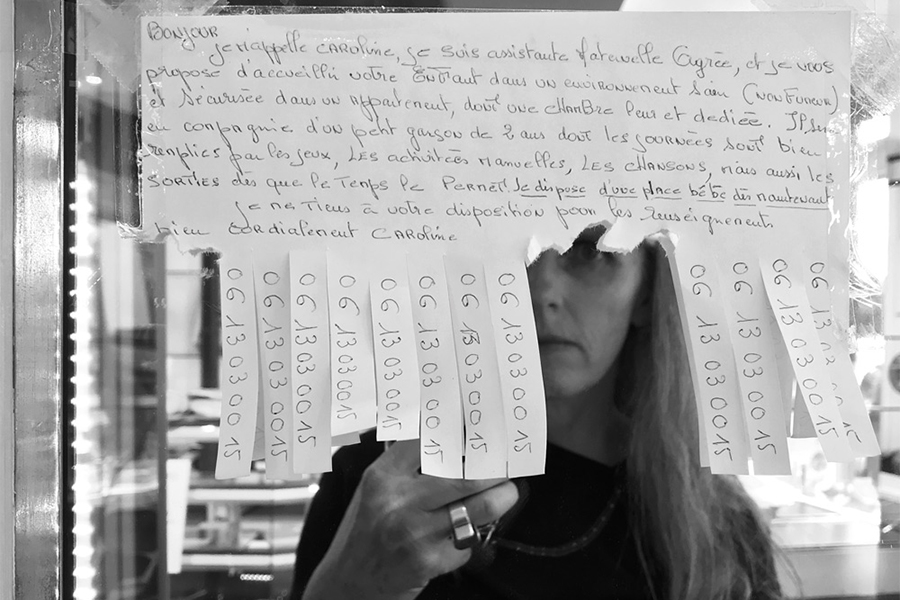 BONJOUR
je m'appelle CAROLINE, je suis assistante Maternelle Agréée, et je vous
propose d'accueillir votre ENFANT dans un environnement Sain (NON FUMEUR)
et sécurisée dans un Appartement, dont une CHAMBRE leur est dediée.
en compagnie d'un petit garçon de 2 ans dont les journées sont bien
remplies par les jeux, LES activitées Manuelles, LES CHANSONS, mais aussi les
SORTIES dès que le Temps le PERMET! Je dispose d'une place bébé dès maintenant
je me tiens à votre disposition pour les renseignements
bien cordialement CAROLINE
06 13 03 00 15
06 13 03 00 15
06 13 03 00 15
06 13 03 00 15
06 13 03 00 15
06 13 03 00 15
06 13 03 00 15
06 13 03 00 15
06 13 03 00 15
06 13 03 00 15
06 13 03 00 15
06 13 15